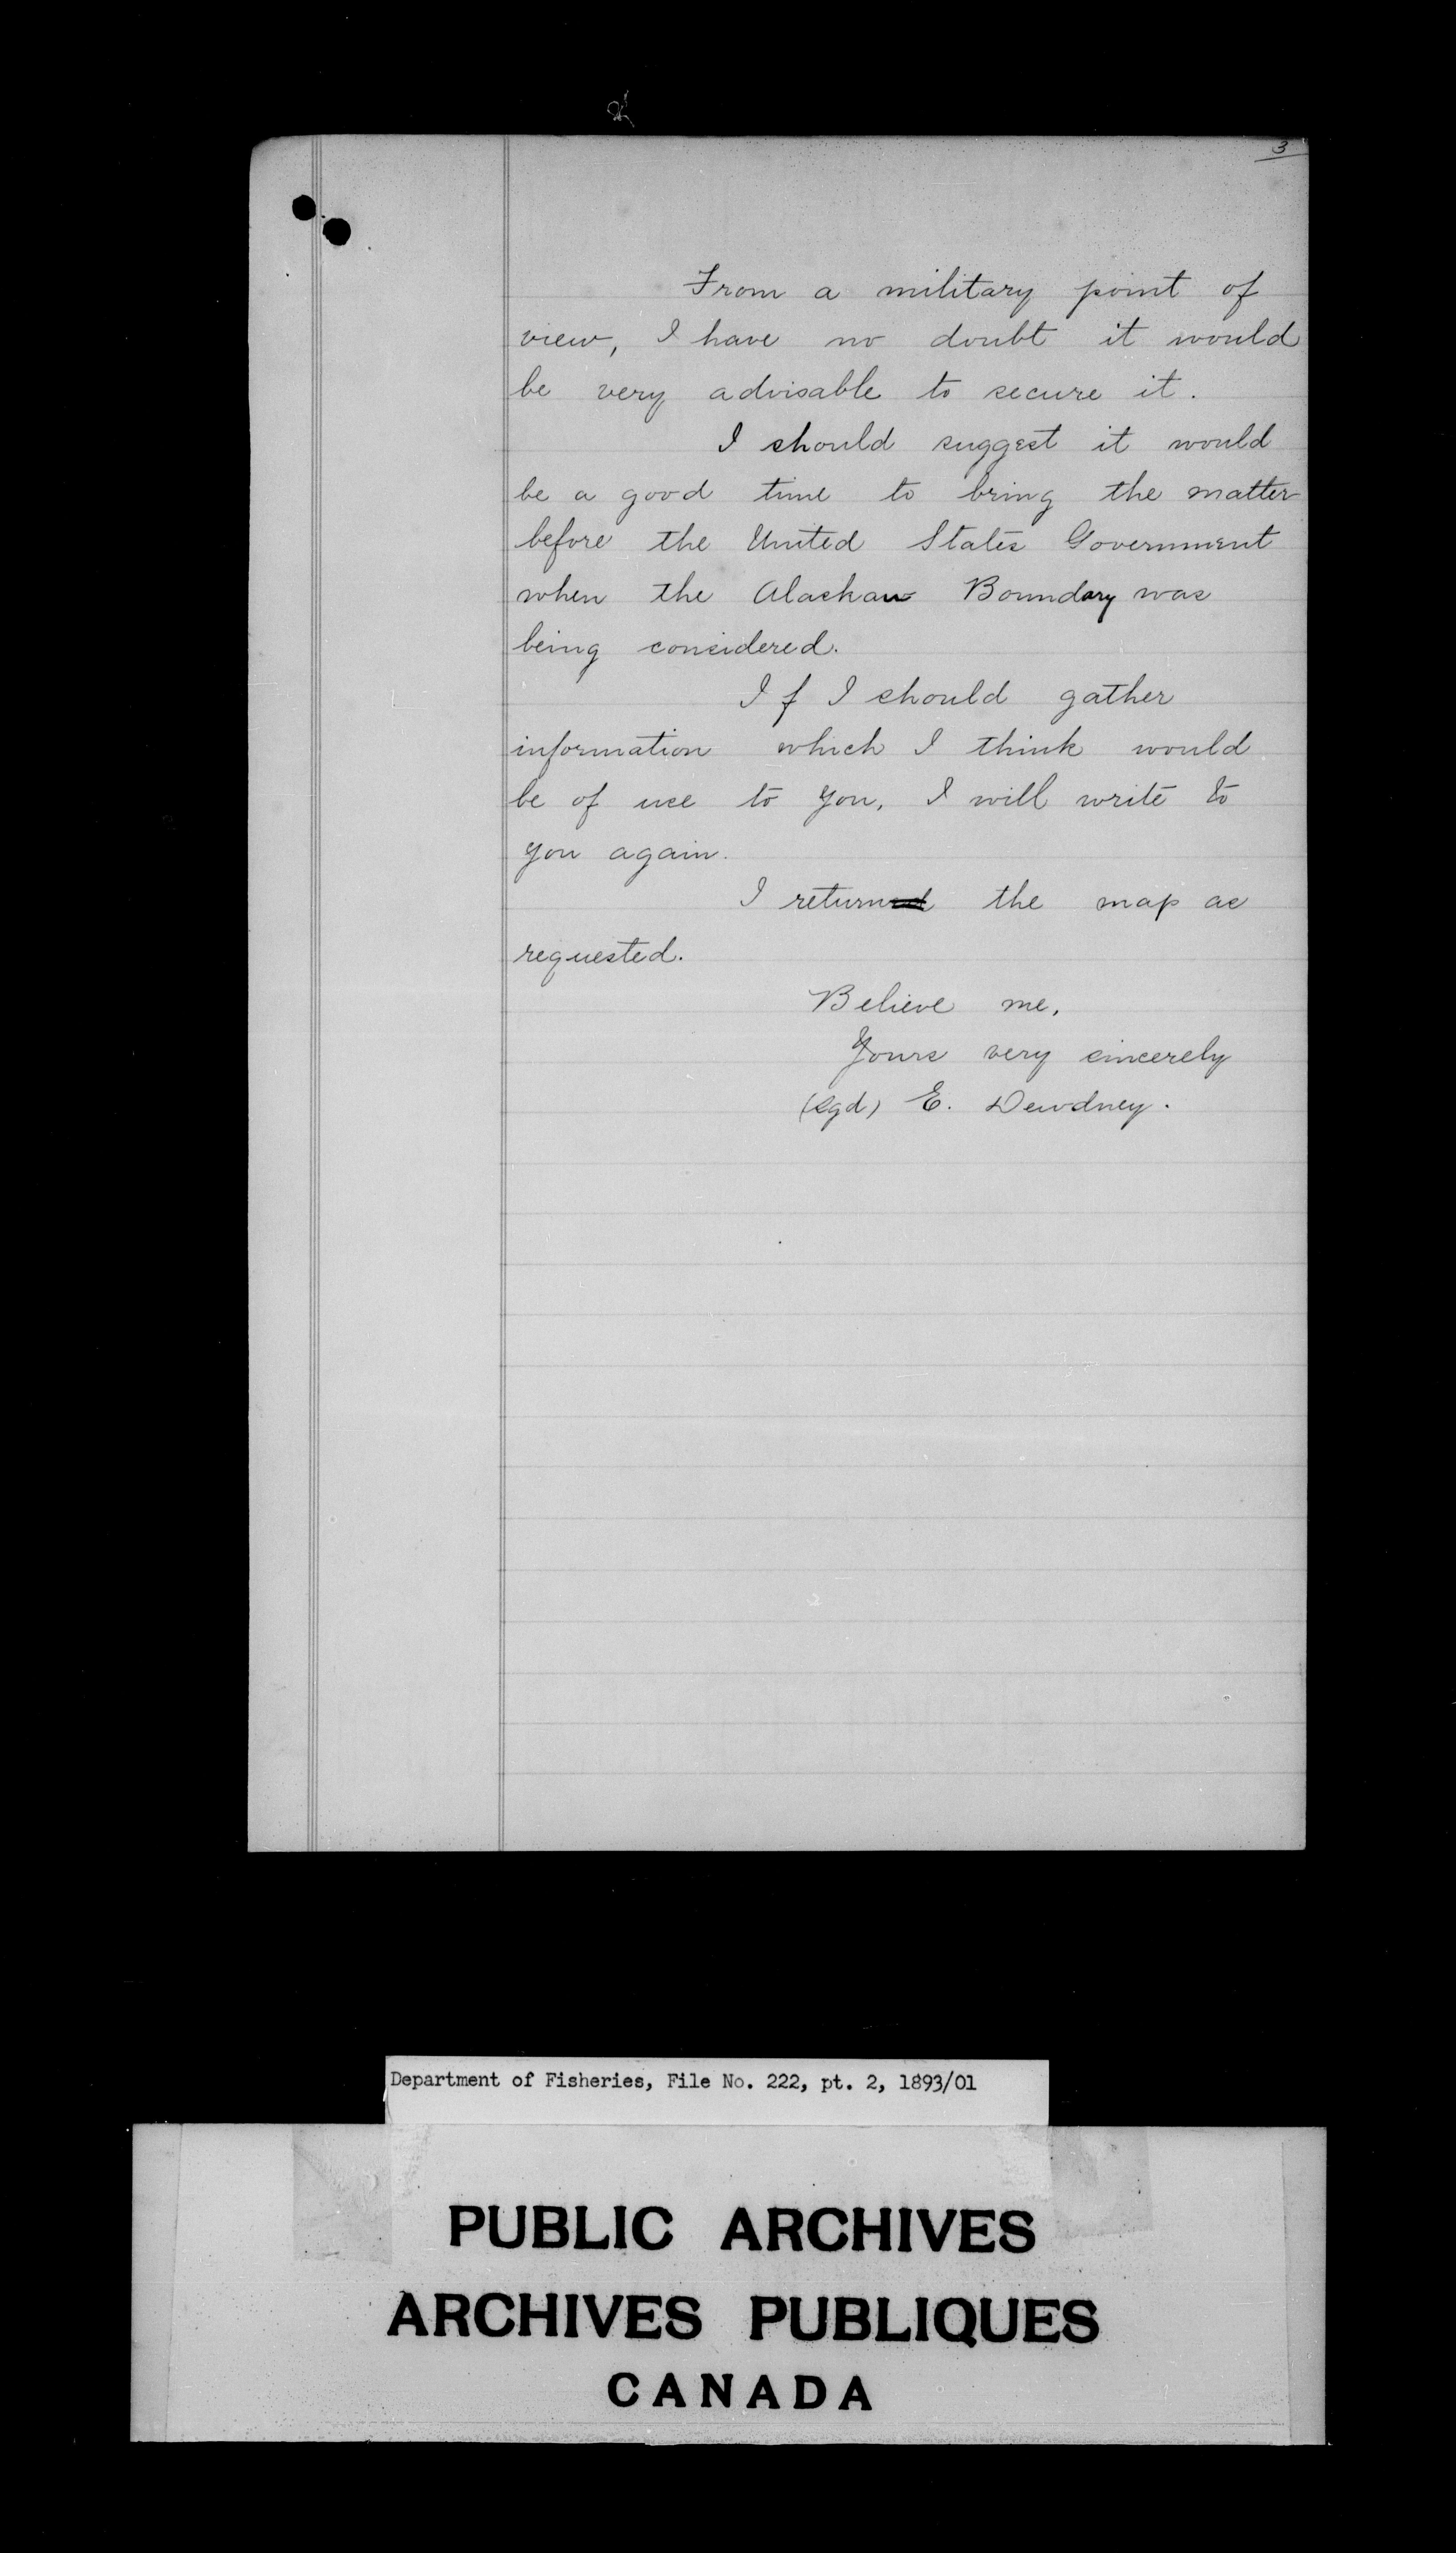 3
From a military point of
view, I have no doubt it would
be very advisable to secure it.
I should suggest it would
be a good time to bring the matter
before the United States Government
when the Alaskan Boundary was
being considered.
If I should gather
information which I think would
be of use to you, I will write to
you again.
I returned the map as
requested.
Believe me,
Yours very sincerely
(Sgd) E. Dewdney.
Department of Fisheries, File No. 222, pt. 2, 1893/01
PUBLIC ARCHIVES
ARCHIVES PUBLIQUES
CANADA